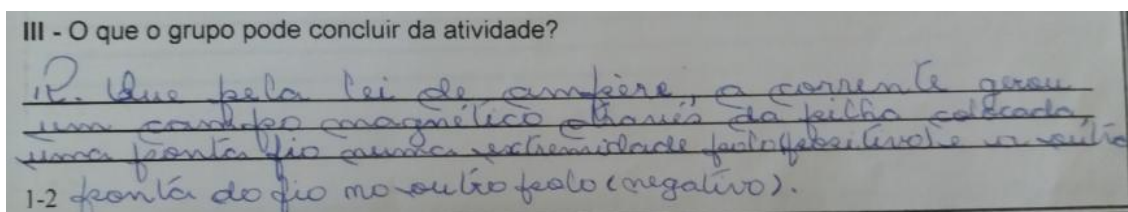 III - O que o grupo pode concluir da atividade?
R. Que pela lei de ampère, a corrente gerou
um campo magnético através da pilha colocada,
uma ponta fio numa extremidade polo (positivo) e a outra
1-2 ponta do fio no outro polo (negativo).